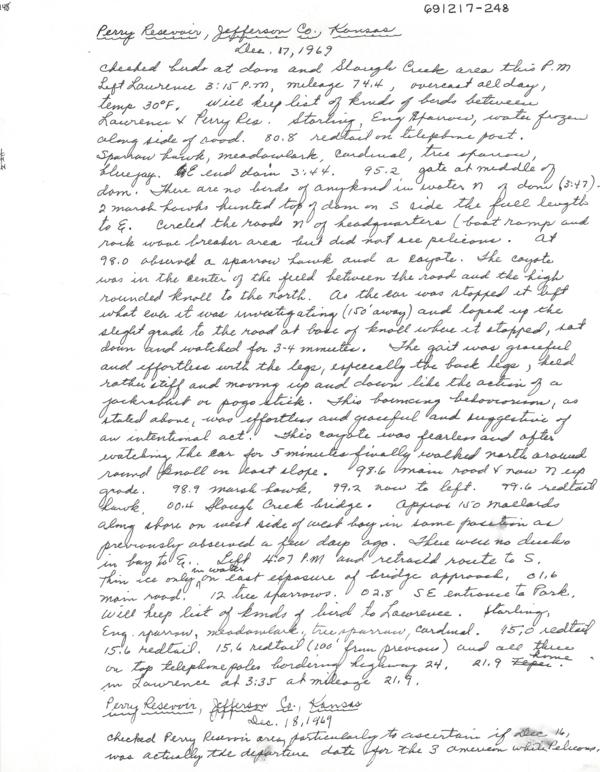 691217-248
Perry Reservoir, Jefferson Co., Kansas
Dec. 17, 1969
Checked birds at dam and Slough Creek area this P.M
Left Lawrence 3:15 P.M, mileage 74.4, overcast all day,
temp 30°F. Will keep list of kinds of birds between
Lawrence & Perry Res. Starling, Eng Sparrow, water frozen
along side of road. 80.8 redtail on telephone post.
Sparrow hawk, meadowlark, cardinal, tree sparrow,
bluejay. E end dam 3:44. 95.2 gate at middle of
dam. There are no birds of any kind in water N of dam (3:47).
2 marsh hawks hunted top of dam on S side the full length
to E. Circled the roads N of headquarters (boat ramp and
rock wave breaker area but did not see pelicans. At
98.0 observed a sparrow hawk and a coyote. The coyote
was in the center of the field between the road and the high
rounded knoll to the north. As the car was stopped it left
what ever it was investigating (150' away) and loped up the
slight grade to the road at base of knoll where it stopped, sat
down and watched for 3-4 minutes. The gait was graceful
and effortless with the legs, especially the back legs, held
rather stiff and moving up and down like the action of a
jackrabbit or pogo stick. This bouncing behaviorism, as
stated above, was effortless and graceful and suggestive of
an intentional act. This coyote was fearless and after
watching the car for 5 minutes finally walked north around
round knoll on east slope. 98.6 main road & now N up
grade. 98.9 marsh hawk. 99.2 now to left. 99.6 redtail
hawk. 00.4 Slough Creek bridge. Approx 150 mallards
along shore on west side of west bay in same position as
previously observed a few days ago. There were no ducks
in bay to E. Left 4:07 P.M and retraced route to S.
Thin ice only in water on east exposure of bridge approach. 01.6
main road. 12 tree sparrows. 02.8 SE entrance to Park.
Will keep list of kinds of bird to Lawrence. Starling,
Eng. sparrow, meadowlark, tree sparrow, cardinal. 15.0 redtail
15.6 redtail. 15.6 redtail (100' from previous) and all three
on top telephone poles bordering highway 24. 21.9 home.
in Lawrence at 3:35 at mileage 21.9.
Perry Reservoir, Jefferson Co., Kansas
Dec. 18, 1969
Checked Perry Reservoir area, particularly to ascertain if Dec 16,
was actually the departure date for the 3 american white Pelicans,